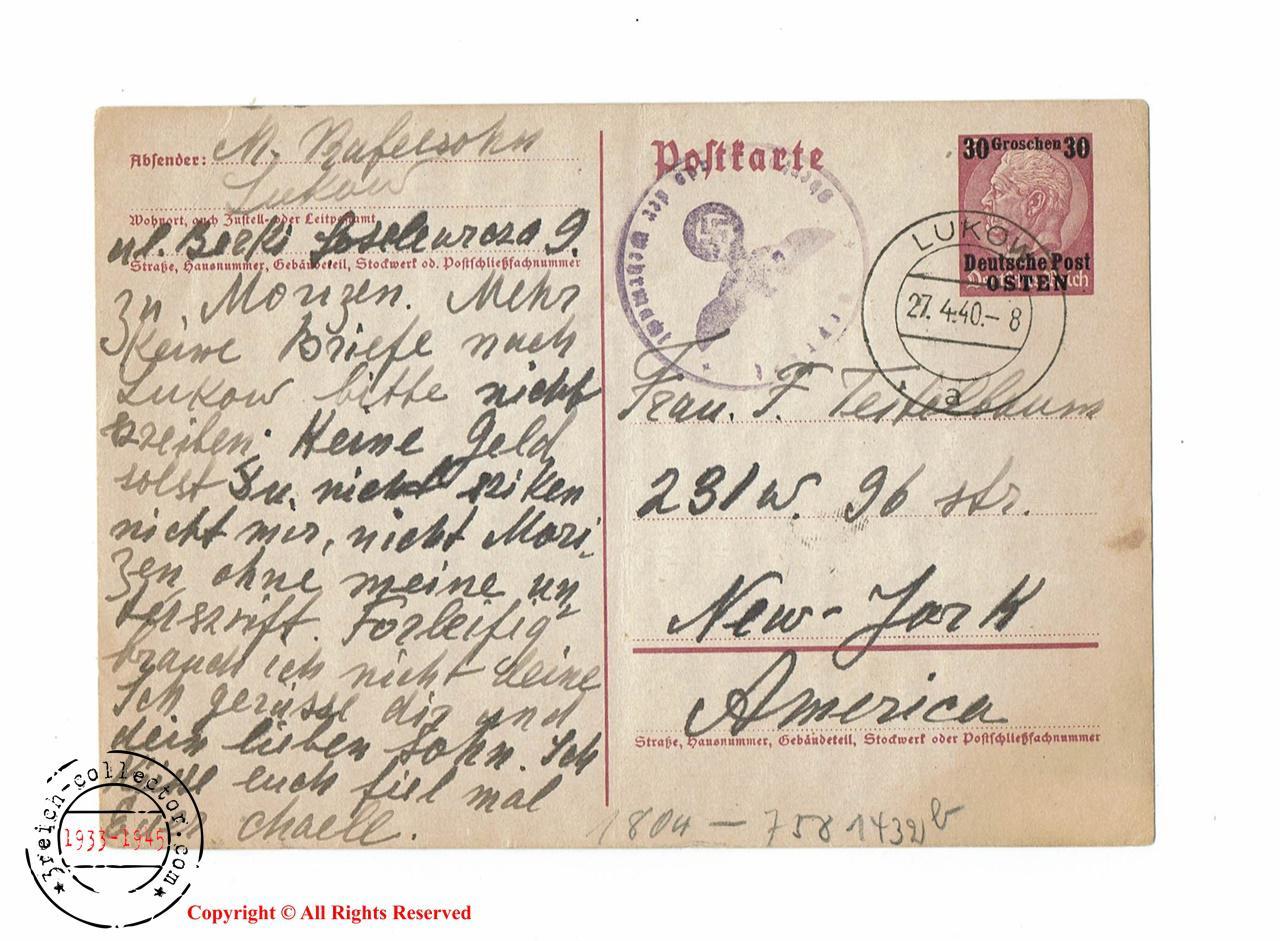 Absender: M. Rafelsohn
Lukow
Wohnort, auch Zustell- oder Leitpostamt
ul. Berki 9.
Straße, Hausnummer, Gebäudeteil, Stockwerk od. Postschließfachnummer
zu Morizen. Mehr
keine Briefe nach
Lukow bitte nicht
szreiben. Keine Geld
solst Du nicht sziken
nicht mir, nicht Mori,
zen ohne meine un,
terszrift. Forleifig
brauch ich nicht deine
Ich gerüsse dir und
dein lieben Sohn. Ich
küsse euch fiel mal
Chaell.
Postkarte
30 Groschen 30
Deutsche Post
OSTEN
LUKOW
27. 4. 40. - 8
a
der Wehrmacht
Frau. F. Teitelbaum
231 W. 96 str.
New-Jork
America
Straße, Hausnummer, Gebäudeteil, Stockwerk oder Postschließfachnummer
1804 — 758 1432 b
3reich-collector.com
1933-1945
Copyright © All Rights Reserved